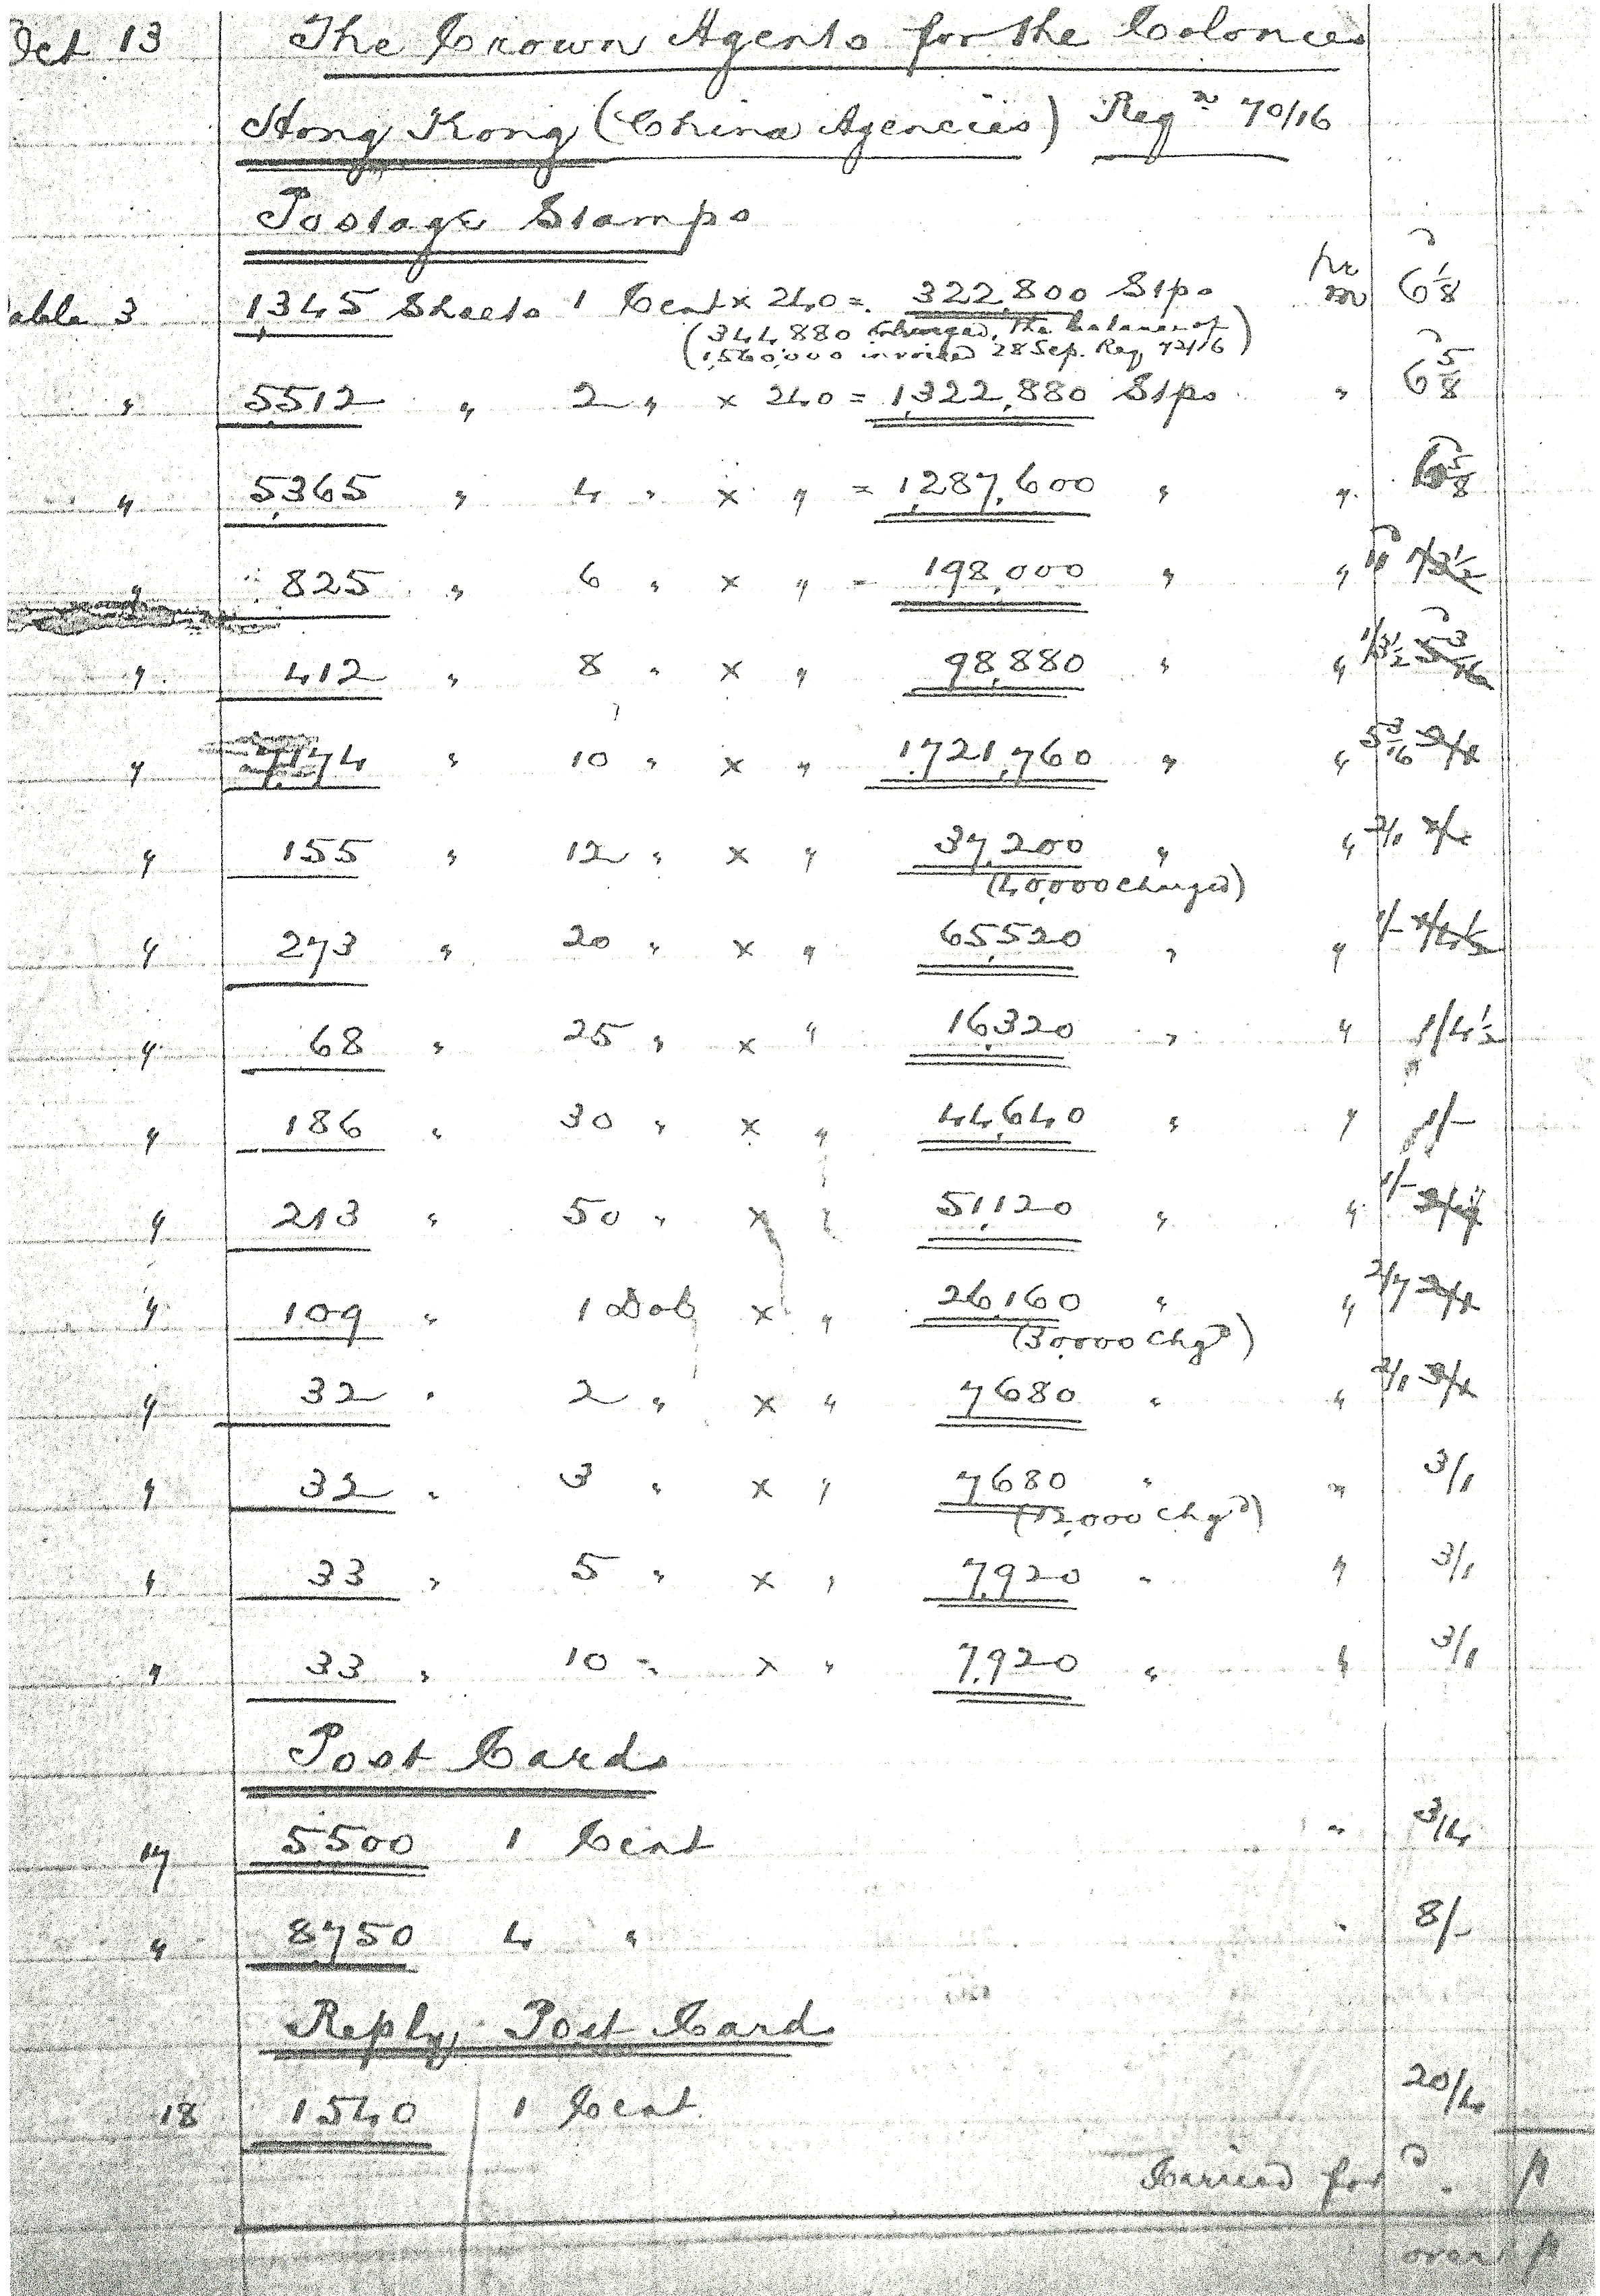 Oct 13 The Crown Agents for the Colonies
Hong Kong (China Agencies) Reqn 70/16
Postage Stamps
able 3 1,345 Sheets 1 Cent x 240 = 322,800 Stps pr m 6 1/8
(344,880 Charged, the balance of
1,560,000 invoiced 28 Sep. Req 72/16)
" 5512 " 2 " x 240 = 1,322,880 Stps " 6 5/8
" 5,365 " 4 " x " = 1,287,600 " " 6 5/8
" 825 " 6 " x " = 198,000 " " 11 1/3½
" 412 " 8 " x " 98,880 " " 1/3½ 5 3/16
" 7,174 " 10 " x " 1,721,760 " " 5 3/16
" 155 " 12 " x " 37,200 " " 2/1
(40,000 charged)
" 273 " 20 " x " 65,520 " " 1/-
" 68 " 25 " x " 16,320 " " 1/4½
" 186 " 30 " x " 44,640 " " 1/-
" 213 " 50 " x " 51,120 " " 1/-
" 109 " 1 Dol x " 26,160 " " 2/7
(30,000 Chgd)
" 32 " 2 " x " 7680 " " 3/1
" 32 " 3 " x " 7680 " " 3/1
(12,000 Chgd)
" 33 " 5 " x " 7,920 " " 3/1
" 33 " 10 " x " 7,920 " " 3/1
Post Cards
17 5500 1 Cent " 3/4
" 8750 4 " " 8/-
Reply Post Card
18 1540 1 Cent 20/4
Carried ford
over